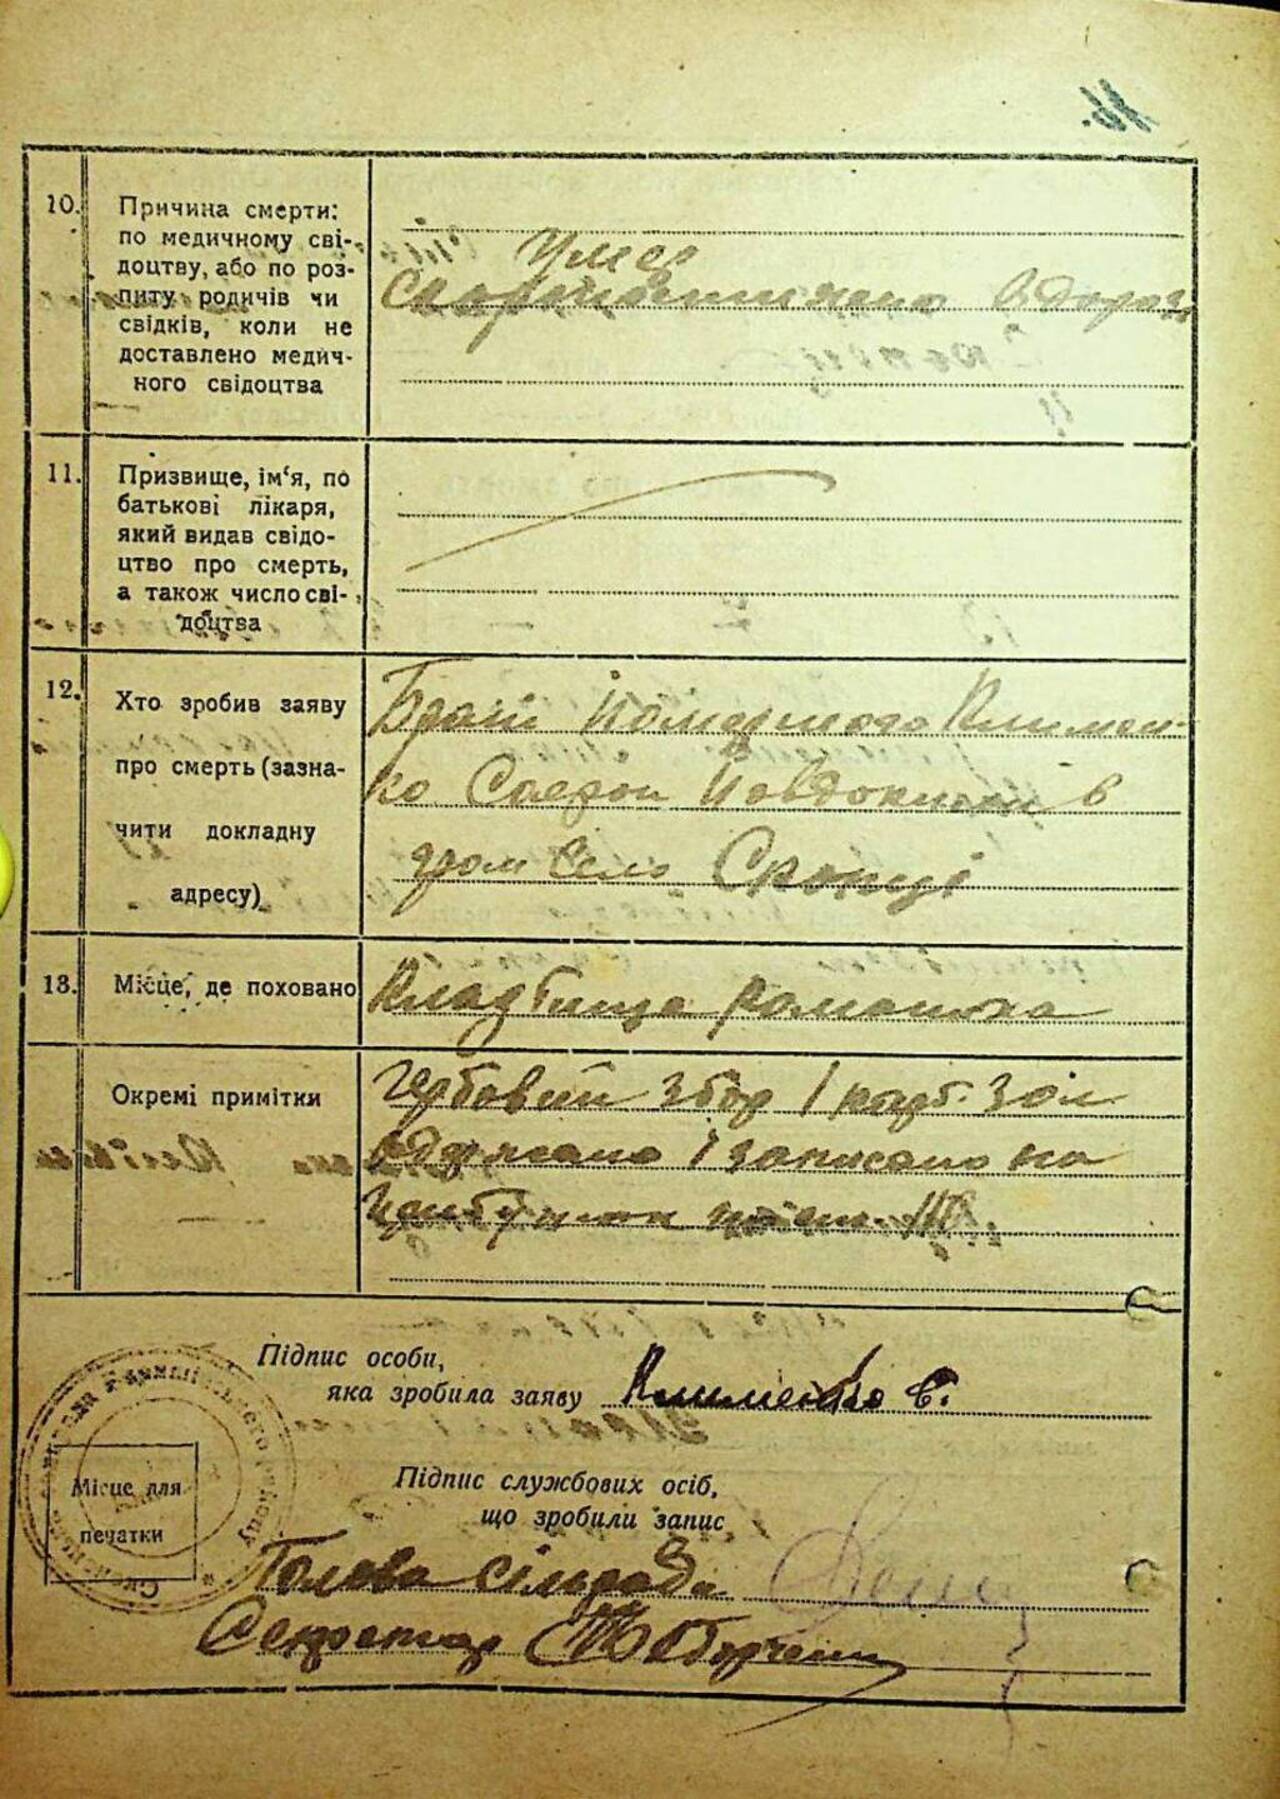 16.
10. Причина смерти:
по медичному сві-
доцтву, або по роз-
питу родичів чи
свідків, коли не
доставлено медич-
ного свідоцтва
Умер
11. Призвище, ім‘я, по
батькові лікаря,
який видав свідо-
цтво про смерть,
а також число сві-
доцтва
12. Хто зробив заяву
про смерть (зазна-
чити докладну
адресу)
Брат Помершого Климен-
ко в
гром село Скопці
13. Місце, де поховано
Кладбище Ромашка
Окремі примітки
Гербовий збор 1 карб. 30к
одержано і записано на
Підпис особи,
яка зробила заяву Клименко С.
Місце для
печатки
Підпис службових осіб,
що зробили запис
Голова сільради
Секретар